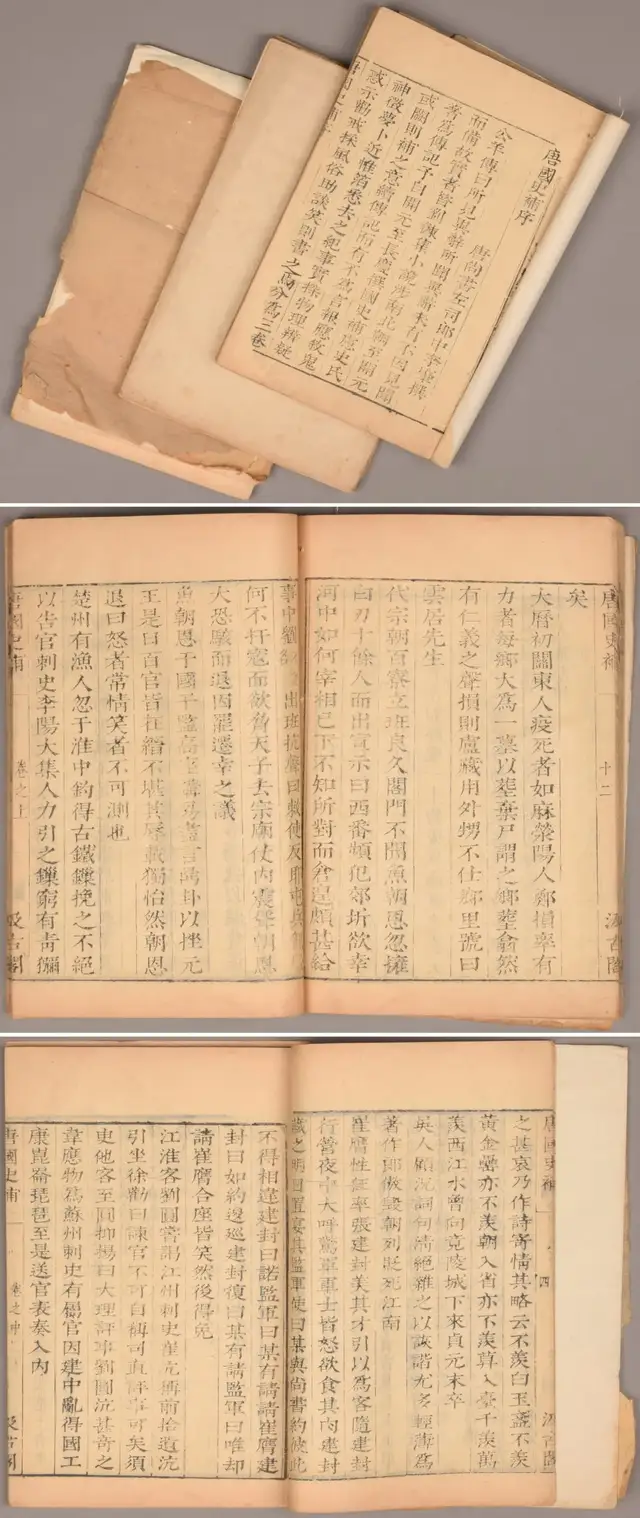 唐國史補序
唐尚書左司郎中李肇撰
公羊傳曰所見異辭所聞異辭未有不因見聞
而備故實者昔劉餗集小說涉南北朝至開元
著為傳記予自開元至長慶撰國史補慮史氏
或闕則補之意續傳記而有不為言報應敘鬼
神徵夢卜近帷箔悉去之紀事實探物理辨疑
惑示勸戒採風俗助談笑則書之為分為三卷
唐國史補
十二
汲古閣
矣
大曆初關東人疫死者如麻滎陽人鄭損率有
力者每鄉大為一墓以葬棄尸謂之鄉葬翕然
有仁義之聲損則盧藏用外甥不仕鄉里號曰
雲居先生
代宗朝百寮立班良久閣門不開魚朝恩忽擁
白刃十餘人而出宣示曰西番頻犯郊圻欲幸
河中如何宰相已下不知所對而倉遑頗甚給
事中劉 出班抗聲曰敕使反耶屯兵
何不扞寇而欲脅天子去宗廟仗內震聳朝恩
大恐駭而退因罷遷幸之議
魚朝恩于國子監高
王是日百官皆在縉不堪其辱載獨怡然朝恩
退曰怒者常情笑者不可測也
楚州有漁人忽于淮中釣得古鐵鏁挽之不絕
以告官刺史李陽大集人力引之鏁窮有青獼
唐國史補
卷之上
汲古閣
唐國史補
四
汲古閣
之甚哀乃作詩寄情其略云不羨白玉盞不羨
黃金罍亦不羨朝入省亦不羨暮入臺千羨萬
羨西江水曾向竟陵城下來貞元末卒
吳人顧況詞句清絕雜之以詼諧尤多輕薄為
著作郎傲毀朝列貶死江南
崔膺性狂率張建封美其才引以為客隨建封
行營夜中大呼驚軍軍士皆怒欲食其肉建封
藏之明日置宴其監軍使曰某與尚書約彼此
不得相違建封曰諾監軍曰某有請請崔膺建
封曰如約逡巡建封復曰某有請監軍曰唯却
請崔膺合座皆笑然後得免
江淮客劉圓嘗謁江州刺史崔沆稱前拾遺沆
引坐徐勸曰諫官不可自稱司直評事可矣須
史他客至圓抑揚曰大理評事劉圓沆甚奇之
韋應物為蘇州刺史有屬官因建中亂得國工
康崑崙琵琶至是送官表奏入內
唐國史補
卷之中
汲古閣